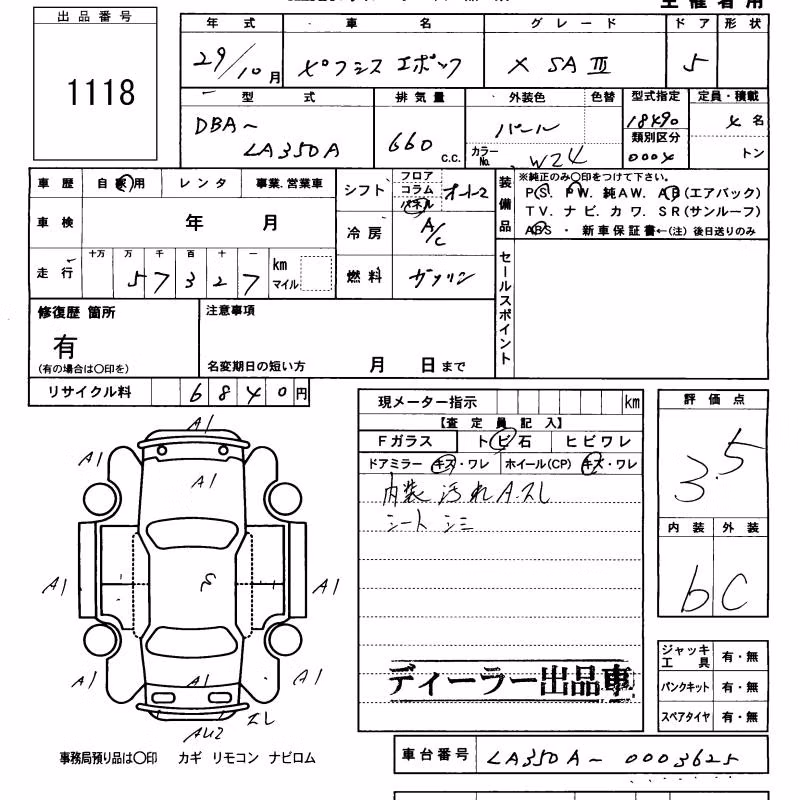 主催者用
出品番号
1118
年式 車名 グレード ドア 形状
29/10月 メ゜フシス エポック X SA Ⅲ 5
型式 排気量 外装色 色替 型式指定 定員・積載
DBA- 660 C.C. パール 18490 4名
LA350A カラーNo. W24 類別区分 0004 トン
車歴 自家用 レンタ 事業.営業車
車検 年 月
走行 十万 万 千 百 十 一 km マイル
57327
シフト フロア コラム パネル オート2
冷房 A/C
燃料 ガソリン
装備品 ※純正のみ○印をつけて下さい。
PS. PW. 純AW. AB(エアバック)
TV. ナビ. カワ. SR(サンルーフ)
ABS ・ 新車保証書←(注) 後日送りのみ
セールスポイント
修復歴 箇所
有
(有の場合は○印を)
注意事項
名変期日の短い方 月 日まで
リサイクル料 6840円
現メーター指示 km
【査定員記入】
Fガラス トビ石 ヒビワレ
ドアミラー キズ・ワレ ホイール(CP) キズ・ワレ
内装 汚れ A.スレ
シート シミ
ディーラー出品車
評価点
3.5
内装 外装
b C
ジャッキ工具 有・無
パンクキット 有・無
スペアタイヤ 有・無
A1
A1 A1
A1
A1 A1
A1 A1 A1
AU2 スレ
事務局預り品は○印 カギ リモコン ナビロム
車台番号 LA350A-0003625